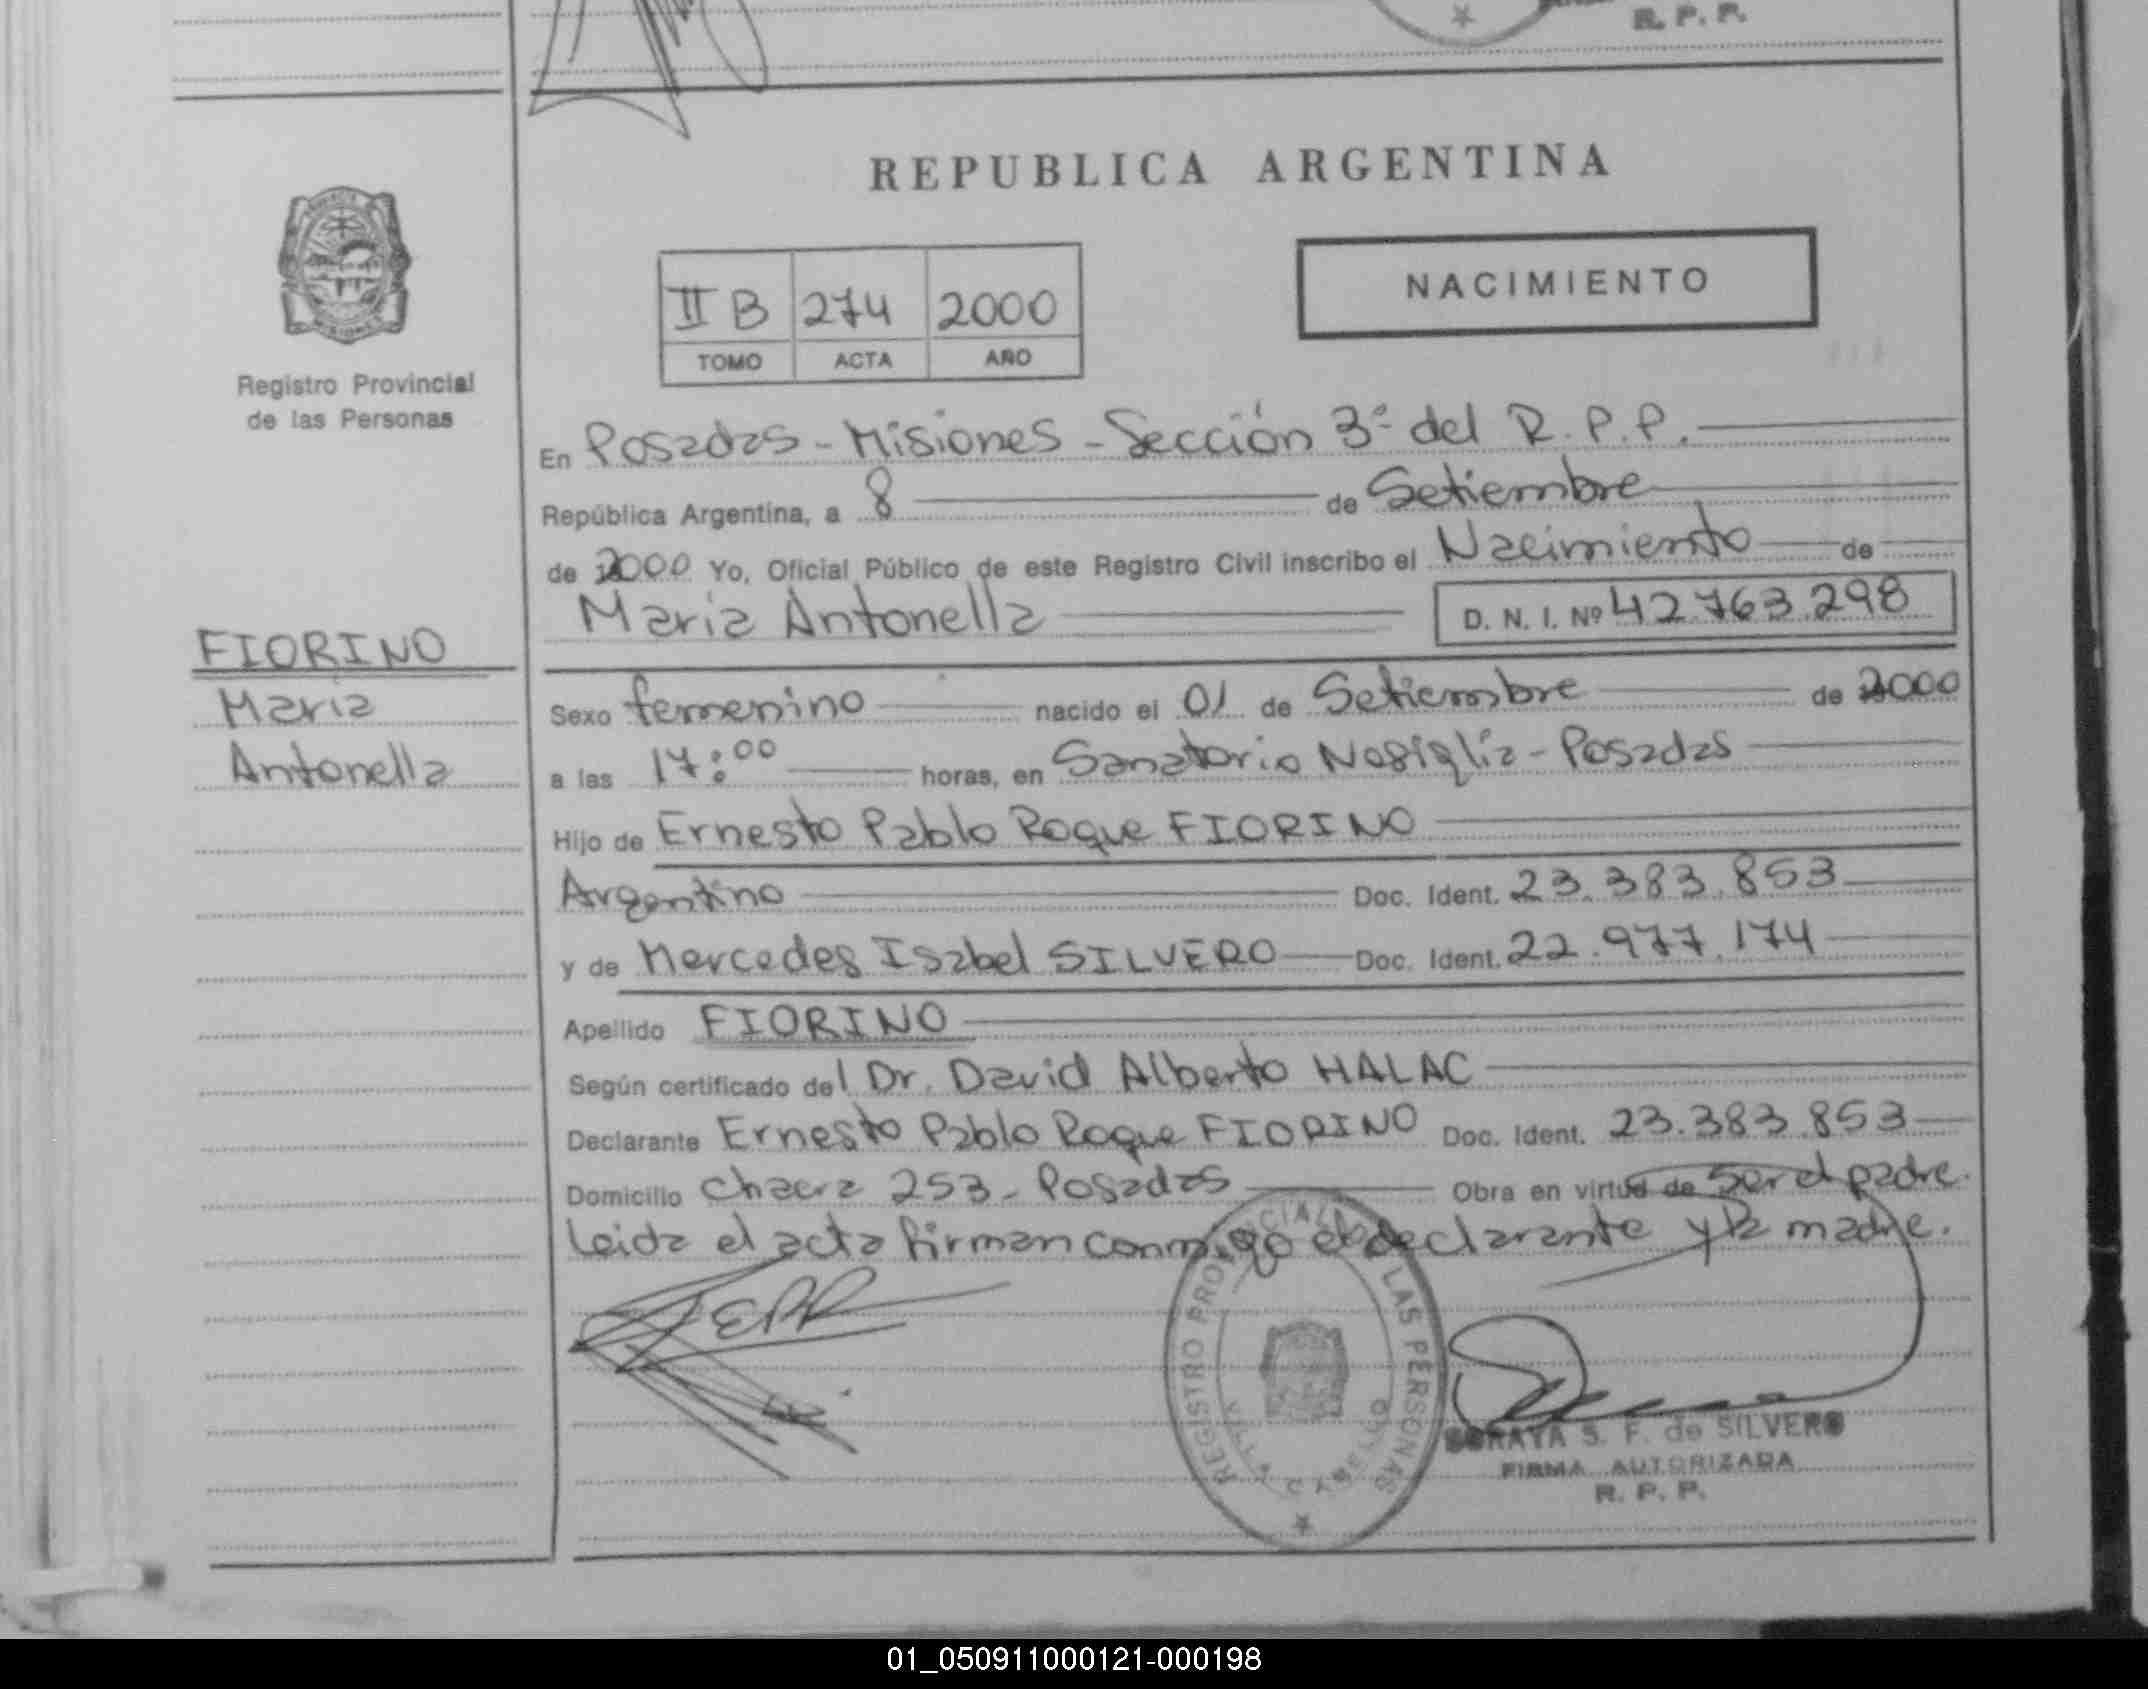 R. P. P.
REPUBLICA ARGENTINA
II B 274 2000
TOMO ACTA AÑO
NACIMIENTO
Registro Provincial
de las Personas
En Posadas - Misiones - Sección 3ª del R.P.P.
República Argentina, a 8 de Setiembre
de 2000 Yo, Oficial Público de este Registro Civil inscribo el Nacimiento de
Maria Antonella D. N. I. Nº 42.763.298
FIORINO
Maria
Antonella
Sexo femenino nacido el 01 de Setiembre de 2000
a las 17:00 horas, en Sanatorio Nosiglia - Posadas
Hijo de Ernesto Pablo Roque FIORINO
Argentino Doc. Ident. 23.383.853
y de Mercedes Isabel SILVERO Doc. Ident. 22.977.174
Apellido FIORINO
Según certificado del Dr. David Alberto HALAC
Declarante Ernesto Pablo Roque FIORINO Doc. Ident. 23.383.853
Domicilio Chacra 253 - Posadas Obra en virtud de ser el padre.
Leida el acta firman conmigo el declarante y la madre.
REGISTRO PROVINCIAL DE LAS PERSONAS
VILLA CABELLO
SORAYA S. F. de SILVERO
FIRMA AUTORIZADA
R. P. P.
01_050911000121-000198